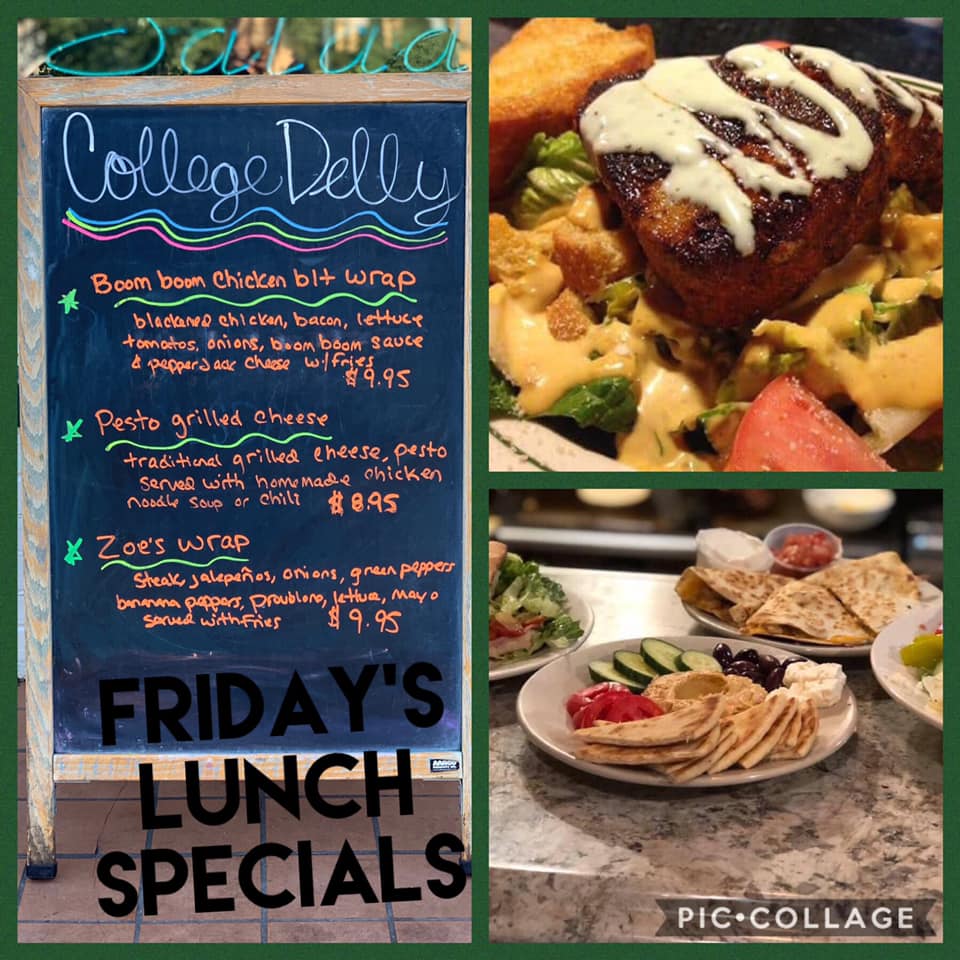 Salad
College Delly
Boom boom Chicken blt wrap
blackened chicken, bacon, lettuce
tomatos, onions, boom boom sauce
& pepperJack cheese w/fries
$9.95
Pesto grilled cheese
traditional grilled cheese, pesto
served with homemade chicken
noodle soup or chili $8.95
Zoe's wrap
Steak, jalepeños, onions, green peppers
bananna peppers, proublone, lettuce, mayo
served with fries $9.95
FRIDAY'S
LUNCH
SPECIALS
PIC•COLLAGE